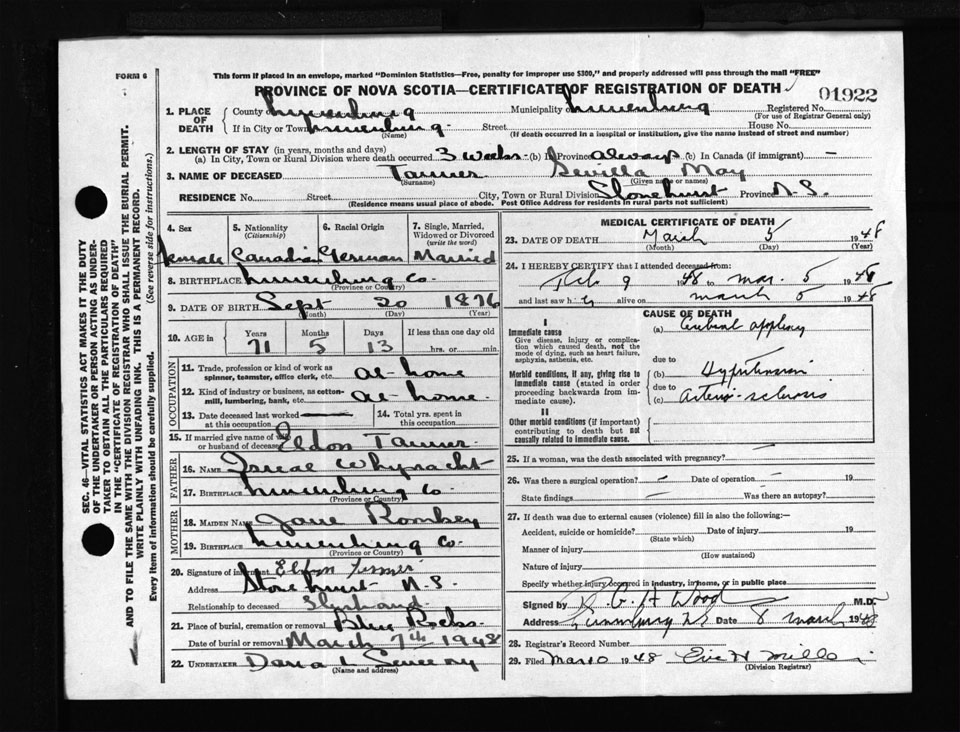 FORM 6
This form if placed in an envelope, marked "Dominion Statistics—Free, penalty for improper use $300," and properly addressed will pass through the mail "FREE"
PROVINCE OF NOVA SCOTIA—CERTIFICATE OF REGISTRATION OF DEATH
01922
1. PLACE OF DEATH County Lunenburg Municipality Lunenburg Registered No.
(For use of Registrar General only)
If in City or Town Lunenburg Street House No.
(Name) (If death occurred in a hospital or institution, give the name instead of street and number)
2. LENGTH OF STAY (in years, months and days)
(a) In City, Town or Rural Division where death occurred 3 weeks (b) In Province always (c) In Canada (if immigrant) —
3. NAME OF DECEASED Tanner Sevilla May
(Surname) (Given name or names)
RESIDENCE No. Street City, Town or Rural Division Stonehurst Province N.S.
(Residence means usual place of abode. Post Office Address for residents in rural parts not sufficient)
4. Sex 5. Nationality 6. Racial Origin 7. Single, Married, Widowed or Divorced
(Citizenship) (write the word)
Female Canadian German Married
8. BIRTHPLACE Lunenburg Co.
(Province or Country)
9. DATE OF BIRTH Sept 20 1876
(Month) (Day) (Year)
10. AGE in Years Months Days If less than one day old
71 5 13 hrs. or min.
OCCUPATION
11. Trade, profession or kind of work as spinner, teamster, office clerk, etc. at-home
12. Kind of industry or business, as cotton-mill, lumbering, bank, etc. at-home
13. Date deceased last worked at this occupation 14. Total yrs. spent in this occupation
15. If married give name of wife or husband of deceased Eldon Tanner
FATHER
16. NAME Whynacht
17. BIRTHPLACE Lunenburg Co
(Province or Country)
MOTHER
18. MAIDEN NAME Jane Romkey
19. BIRTHPLACE Lunenburg Co.
(Province or Country)
20. Signature of informant Eldon Tanner
Address Stonehurst N.S.
Relationship to deceased Husband
21. Place of burial, cremation or removal Blue Rocks
Date of burial or removal March 7th 1948
22. UNDERTAKER Dana L Sweeny
(Name and address)
MEDICAL CERTIFICATE OF DEATH
23. DATE OF DEATH March 5 1948
(Month) (Day) (Year)
24. I HEREBY CERTIFY that I attended deceased from:
Feb. 9 1948 to Mar. 5 1948
and last saw h er alive on March 5 1948
CAUSE OF DEATH
I
Immediate cause (a) Cerebral apoplexy
Give disease, injury or complication which caused death, not the mode of dying, such as heart failure, asphyxia, asthenia, etc.
due to
Morbid conditions, if any, giving rise to immediate cause (stated in order proceeding backwards from immediate cause).
(b) Hypertension
due to
(c) Arterio-sclerosis
II
Other morbid conditions (if important) contributing to death but not causally related to immediate cause.
25. If a woman, was the death associated with pregnancy? —
26. Was there a surgical operation? — Date of operation — 19
State findings Was there an autopsy?
27. If death was due to external causes (violence) fill in also the following:
Accident, suicide or homicide? Date of injury 19
(State which)
Manner of injury
(How sustained)
Nature of injury
Specify whether injury occurred in industry, in home, or in public place
Signed by G. A Wood M.D.
Address Lunenburg NS Date 8 March 1948
28. Registrar's Record Number
29. Filed Mar 10 1948
(Division Registrar)
SEC. 46—VITAL STATISTICS ACT MAKES IT THE DUTY
OF THE UNDERTAKER OR PERSON ACTING AS UNDER-
TAKER TO OBTAIN ALL THE PARTICULARS REQUIRED
IN THE "CERTIFICATE OF REGISTRATION OF DEATH"
AND TO FILE THE SAME WITH THE DIVISION REGISTRAR WHO SHALL ISSUE THE BURIAL PERMIT.
WRITE PLAINLY WITH UNFADING INK. THIS IS A PERMANENT RECORD.
Every item of information should be carefully supplied. (See reverse side for instructions.)